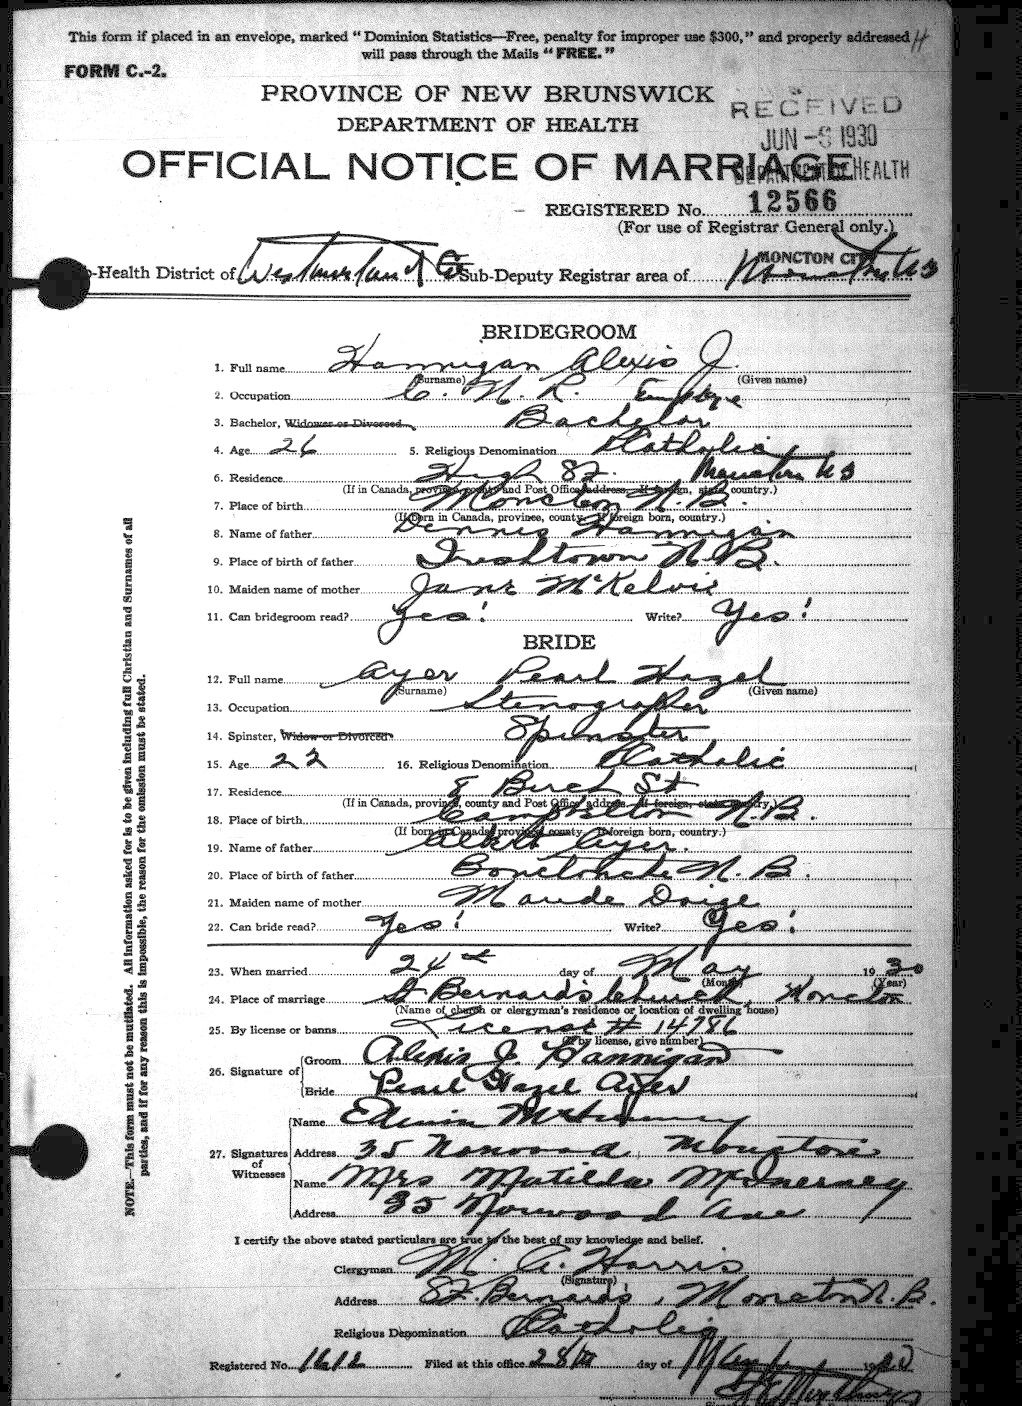 This form if placed in an envelope, marked “Dominion Statistics—Free, penalty for improper use $300,” and properly addressed
will pass through the Mails “FREE.”
FORM C.-2.
PROVINCE OF NEW BRUNSWICK
RECEIVED
DEPARTMENT OF HEALTH
JUN 1930
OFFICIAL NOTICE OF MARRIAGE
DEPARTMENT OF HEALTH
REGISTERED No. 12566
(For use of Registrar General only.)
-Health District of Westmorland Co Sub-Deputy Registrar area of MONCTON CITY
BRIDEGROOM
1. Full name Hannigan Alexis J.
(Surname) (Given name)
2. Occupation C. N. R. Employe
3. Bachelor, Widower or Divorced Bachelor
4. Age 26 5. Religious Denomination Catholic
6. Residence High St. Moncton NB
(If in Canada, province, county and Post Office address. If foreign, state, country.)
7. Place of birth Moncton N.B.
(If born in Canada, province, county. If foreign born, country.)
8. Name of father Dennis Hannigan
9. Place of birth of father Irishtown N.B.
10. Maiden name of mother Jane McKelvie
11. Can bridegroom read? Yes! Write? Yes!
BRIDE
12. Full name Ayer Pearl Hazel
(Surname) (Given name)
13. Occupation Stenographer
14. Spinster, Widow or Divorced Spinster
15. Age 22 16. Religious Denomination Catholic
17. Residence 8 Birch St
(If in Canada, province, county and Post Office address. If foreign, state country.)
18. Place of birth Campbellton N.B.
(If born in Canada, province, county. If foreign born, country.)
19. Name of father Albert Ayer.
20. Place of birth of father Bouctouche N.B.
21. Maiden name of mother Maude Doige
22. Can bride read? Yes! Write? Yes!
23. When married 24th day of May 1930
(Month) (Year)
24. Place of marriage St Bernard's Church, Moncton
(Name of church or clergyman's residence or location of dwelling house)
25. By license or banns License # 14786
(If by license, give number)
26. Signature of Groom Alexis J. Hannigan
Bride Pearl Hazel Ayer
27. Signatures of Witnesses
Name Edwin McInerney
Address 35 Norwood, Moncton
Name Mrs Matilda McInerney
Address 35 Norwood Ave
I certify the above stated particulars are true to the best of my knowledge and belief.
Clergyman M. A. Harris
(Signature)
Address St. Bernard's, Moncton N.B.
Religious Denomination Catholic
Registered No. 1612 Filed at this office 28th day of May 1930
NOTE.—This form must not be mutilated. All information asked for is to be given including full Christian and Surnames of all
parties, and if for any reason this is impossible, the reason for the omission must be stated.